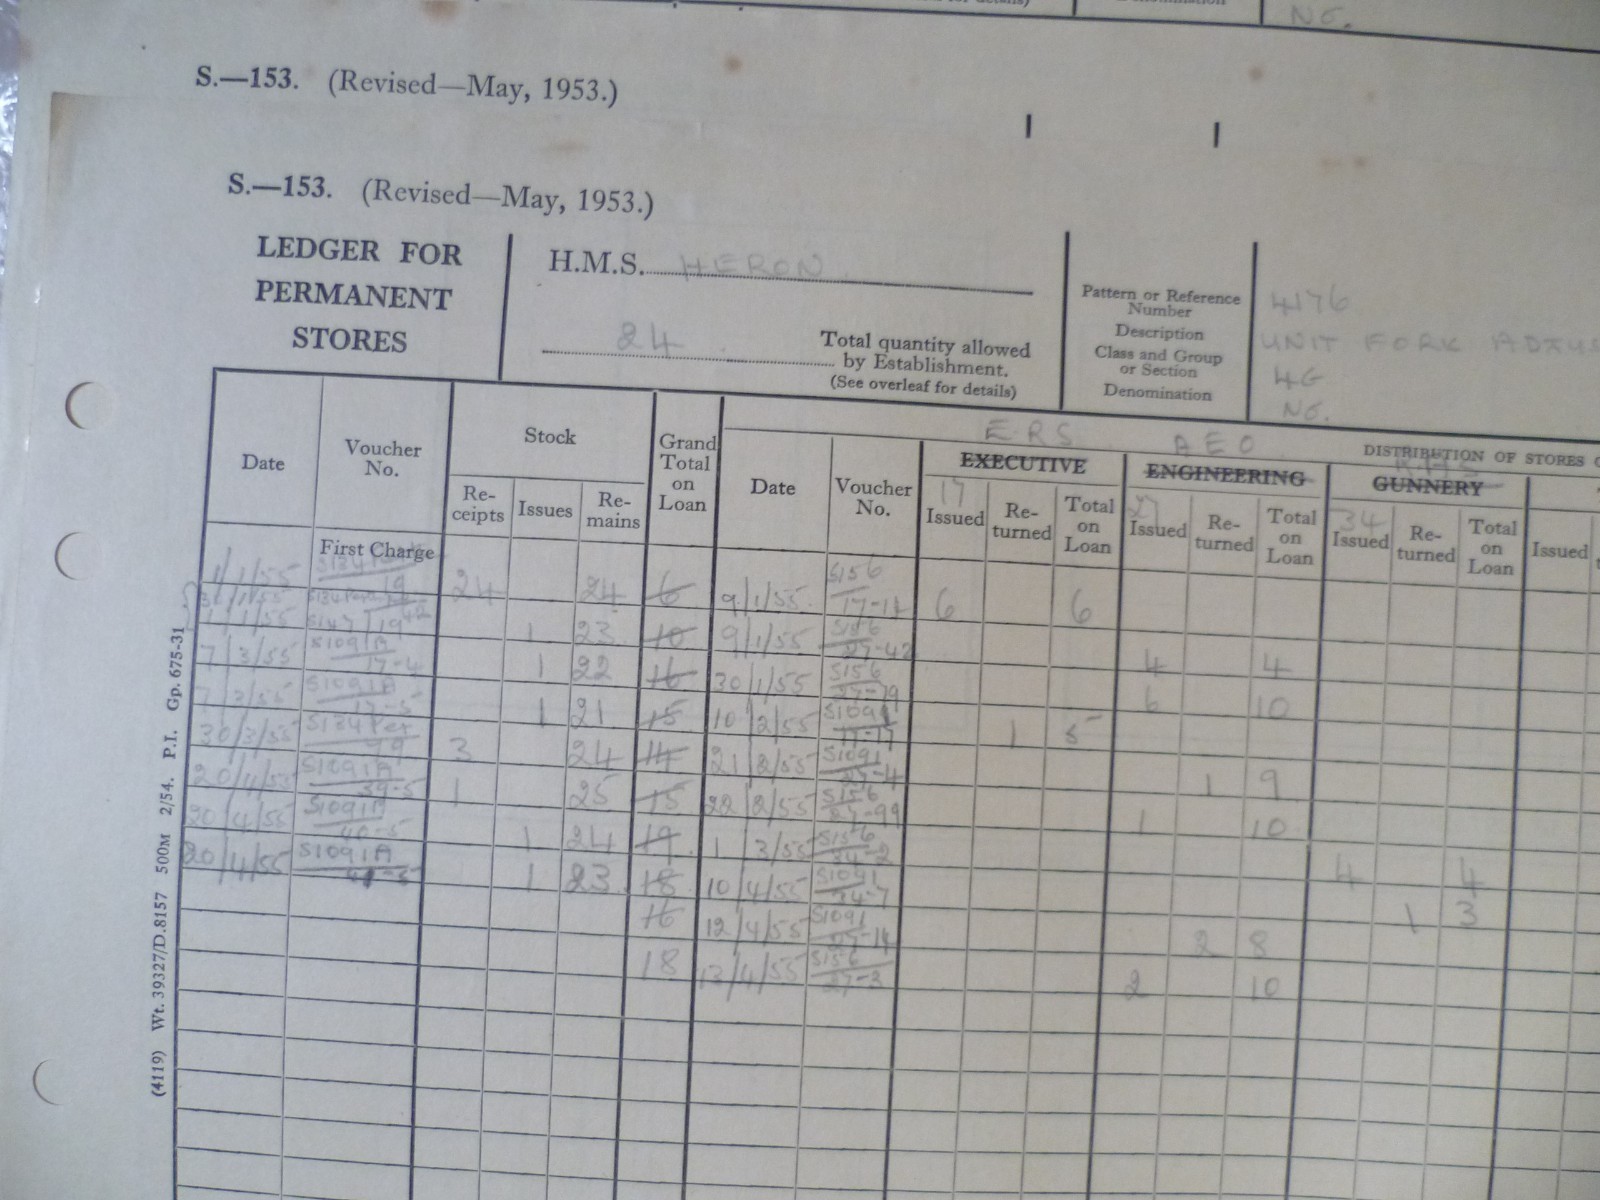 No.
S.—153. (Revised—May, 1953.)
S.—153. (Revised—May, 1953.)
LEDGER FOR PERMANENT STORES
H.M.S. HERON
24 Total quantity allowed by Establishment.
(See overleaf for details)
Pattern or Reference Number 4176
Description UNIT FORK
Class and Group or Section 4G
Denomination No.
DISTRIBUTION OF STORES
E.R.S A E O
EXECUTIVE ENGINEERING GUNNERY
Date Voucher No. Stock Grand Total on Loan Date Voucher No. 17 Issued Re-turned Total on Loan 27 Issued Re-turned Total on Loan 34 Issued Re-turned Total on Loan Issued
Re-ceipts Issues Re-mains
First Charge
1/1/55 24 24 6 9/1/55 S156 17-11 6 6
1/1/55 1 23 10 9/1/55 S156 27-42 4 4
7/3/55 S1091A 17-4 1 22 16 30/1/55 S156 27-79 6 10
7/3/55 S1091A 17-5 1 21 15 10/2/55 S1091 1 5
30/3/55 3 24 14 21/2/55 S1091 27-4 1 9
20/4/55 S1091A 39-5 1 25 15 22/2/55 S156 27-99 1 10
20/4/55 S1091A 40-5 1 24 19 1/3/55 S156 34-2 4 4
20/4/55 S1091A 41-5 1 23 18 10/4/55 S1091 34-7 1 3
16 12/4/55 S1091 27-14 2 8
18 13/4/55 S156 27-3 2 10
(4119) Wt. 39327/D.8157 500M 2/54. P.I. Gp. 675-31